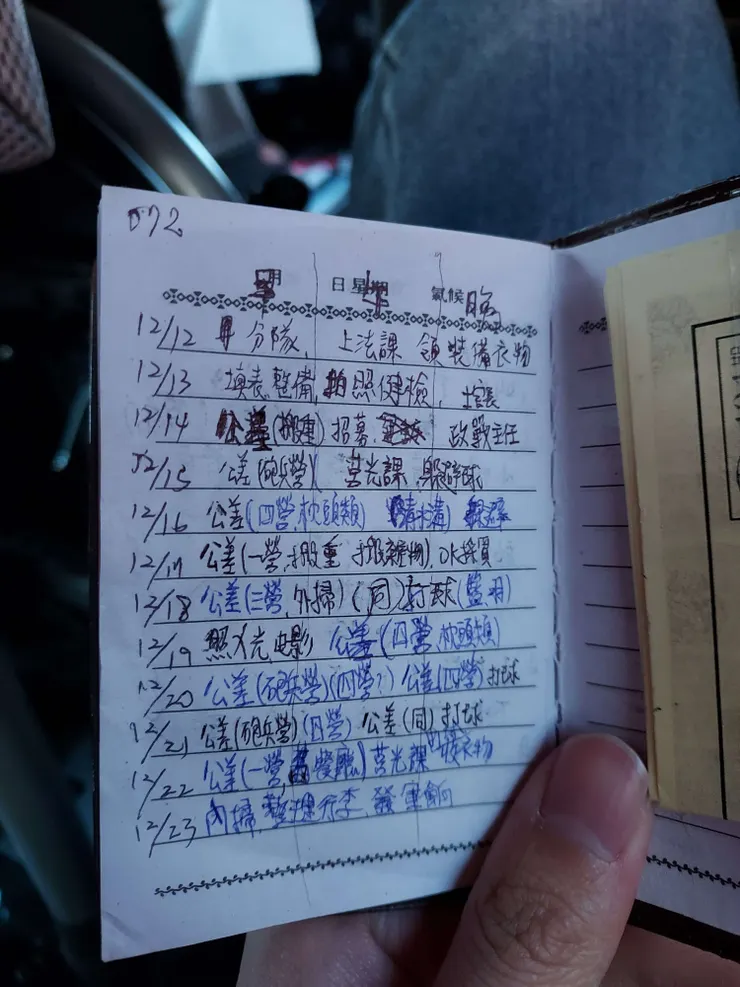 072
月 日 星期 氣候 晚
12/12 分隊, 上法課 領裝備衣物
12/13 填表, 整備, 拍照健檢, 士官長
12/14 公差(搬運) 招募, 政戰主任
12/15 公差(砲兵營) 莒光課, 躲避球
12/16 公差(四營, 枕頭類) (清水溝)
12/17 公差(一營, 搬重 搬雜物), OK採買
12/18 公差(三營, 外掃) (同) 打球(籃, 羽)
12/19 照X光, 电影 公差(四營, 枕頭類)
12/20 公差(砲兵營)(四營?) 公差(四營) 打球
12/21 公差(砲兵營)(四營) 公差(同) 打球
12/22 公差(一營, 餐廳) 莒光課 衣物
12/23 內掃, 整理行李, 發軍餉